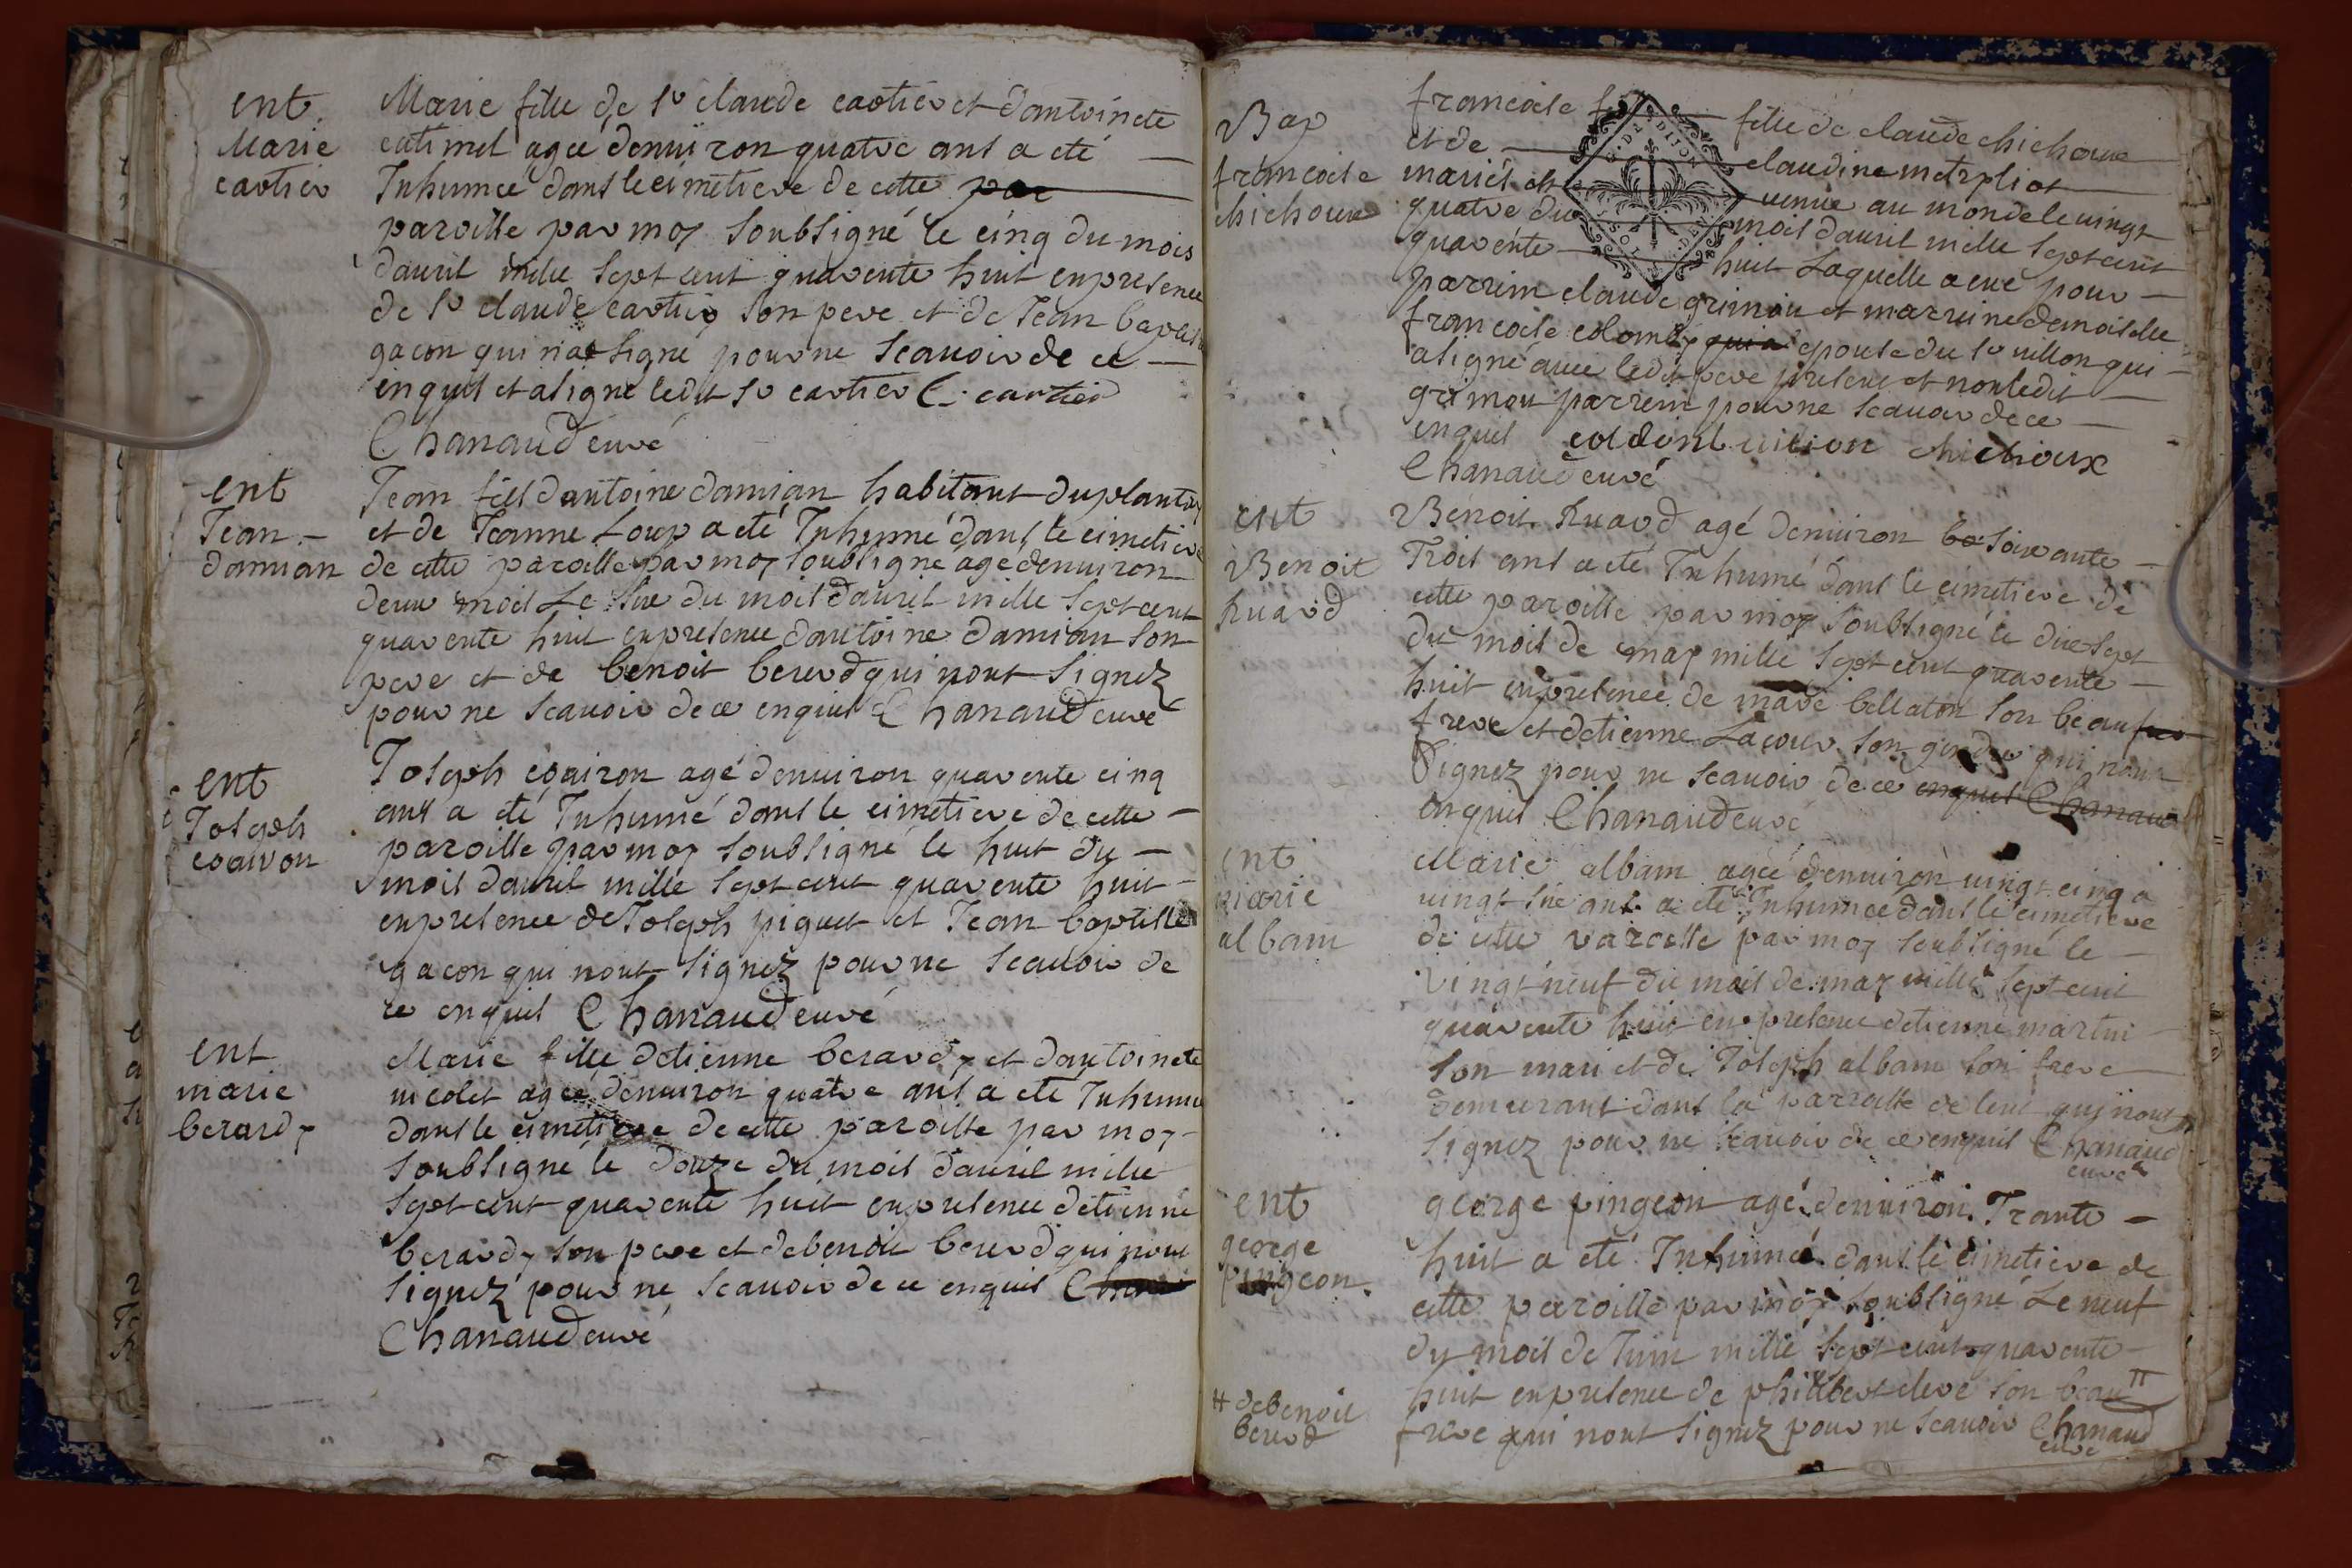 ent.
Marie
cartier
Marie fille de Sr claude cartier et dantoinete
catimel agée denuiron quatre ans a eté
Inhumée dans le cimetiere de cette par
paroisse par moy soubsigné le cinq du mois
dauril mille sept cent quarente huit en presence
de Sr claude cartier son pere et de Jean bapt
gacon qui na signé pour ne scauoir de ce
enquis et a signe ledit Sr cartier C. cartier
Chanaud curé
ent
Jean
damian
Jean fils dantoine damian habitant du plantay
et de Jeanne Loup a eté Inhumé dans le cimetiere
de cette paroisse par moy soubsigne agé denuiron
deux mois Le six du mois dauril mille sept cent
quarente huit en presence dantoine damian son
pere et de benoit bererd qui nont signez
pour ne scauoir de ce enquis Chanaud curé
ent
Joseph
Joseph agé denuiron quarente cinq
ans a eté Inhumé dans le cimetiere de cette
paroisse par moy soubsigné le huit du
mois dauril mille sept cent quarente huit
en presence de Joseph piquet et Jean baptiste
gacon qui nont signez pour ne scauoir de
ce enquis Chanaud curé
ent
marie
berardy
Marie fille detienne berardy et dantoinete
nicolet agée denuiron quatre ans a eté Inhumée
dans le cimetiere de cette paroisse par moy
soubsigné le douze du mois dauril mille
sept cent quarente huit en presence detienne
berardy son pere et de benoit bererd qui nont
signez pour ne scauoir de ce enquis Chana
Chanaud curé
Bap
francoise
chichoux
francoise fille de claude chichoux
et de claudine
mariés et venue au monde le vingt
quatre du mois dauril mille sept cent
quarente huit Laquelle a eue pour
parrein claude grimou et marreine demoiselle
francoise colomby qui a epouse du Sr uillon qui
a signé auec ledit pere present et non ledit
grimou parrein pour ne scauoir de ce
enquis uilion chichoux
Chanaud curé
ent
Benoit
huard
Benoit huard agé denuiron soixante
Trois ans a eté Inhumé dans le cimetiere de
cette paroisse par moy soubsigné le dix sept
du mois de may mille sept cent quarente
huit en presence de marc bellaton son beau
frere et detienne Lacour son gendre qui nont
signez pour ne scauoir de ce enquis Chanau
enquis Chanaud curé
ent
marie
albam
Marie albam agée denuiron vingt cinq a
vingt six ans a eté Inhumée dans le cimetiere
de cette paroisse par moy soubsigné le
vingt neuf du mois de may mille sept cent
quarente huit en presence detienne martin
son mari et de Joseph albam son frere
demeurant dans la parroisse de qui nont
signez pour ne scauoir de ce enquis Chanaud
curé
ent
george
pingeon.
george pingeon agé denuiron Trante
huit a eté Inhumé dans le cimetiere de
cette paroisse par moy soubsigné Le neuf
du mois de Juin mille sept cent quarente
huit en presence de philibert clere son beau #
frere qui nont signez pour ne scauoir Chanaud
curé
# de benoit
bererd